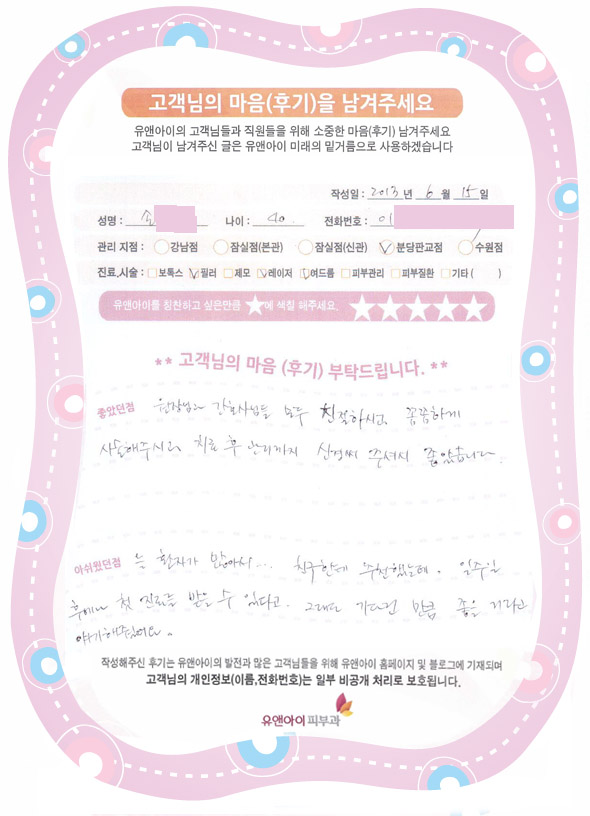 고객님의 마음(후기)을 남겨주세요
유앤아이의 고객님들과 직원들을 위해 소중한 마음(후기) 남겨주세요
고객님이 남겨주신 글은 유앤아이 미래의 밑거름으로 사용하겠습니다
작성일 : 2013 년 6 월 15 일
성명 : 손 나이 : 40 전화번호 : 01
관리 지점 : 강남점 잠실점(본관) 잠실점(신관) 분당판교점 수원점
진료,시술 : 보톡스 필러 제모 레이저 여드름 피부관리 피부질환 기타 ( )
유앤아이를 칭찬하고 싶은만큼 ★에 색칠 해주세요. ★★★★★
** 고객님의 마음 (후기) 부탁드립니다. **
좋았던점 원장님과 간호사님들 모두 친절하시고 꼼꼼하게
시술해주시고 치료 후 관리까지 신경써 주셔서 좋았습니다.
아쉬웠던점 늘 환자가 많아서... 친구한테 추천했는데. 일주일
후에나 첫 진료를 받을 수 있다고. 그래도 기다린 만큼 좋을 거라고
얘기해주었어요.
작성해주신 후기는 유앤아이의 발전과 많은 고객님들을 위해 유앤아이 홈페이지 및 블로그에 기재되며
고객님의 개인정보(이름,전화번호)는 일부 비공개 처리로 보호됩니다.
유앤아이피부과